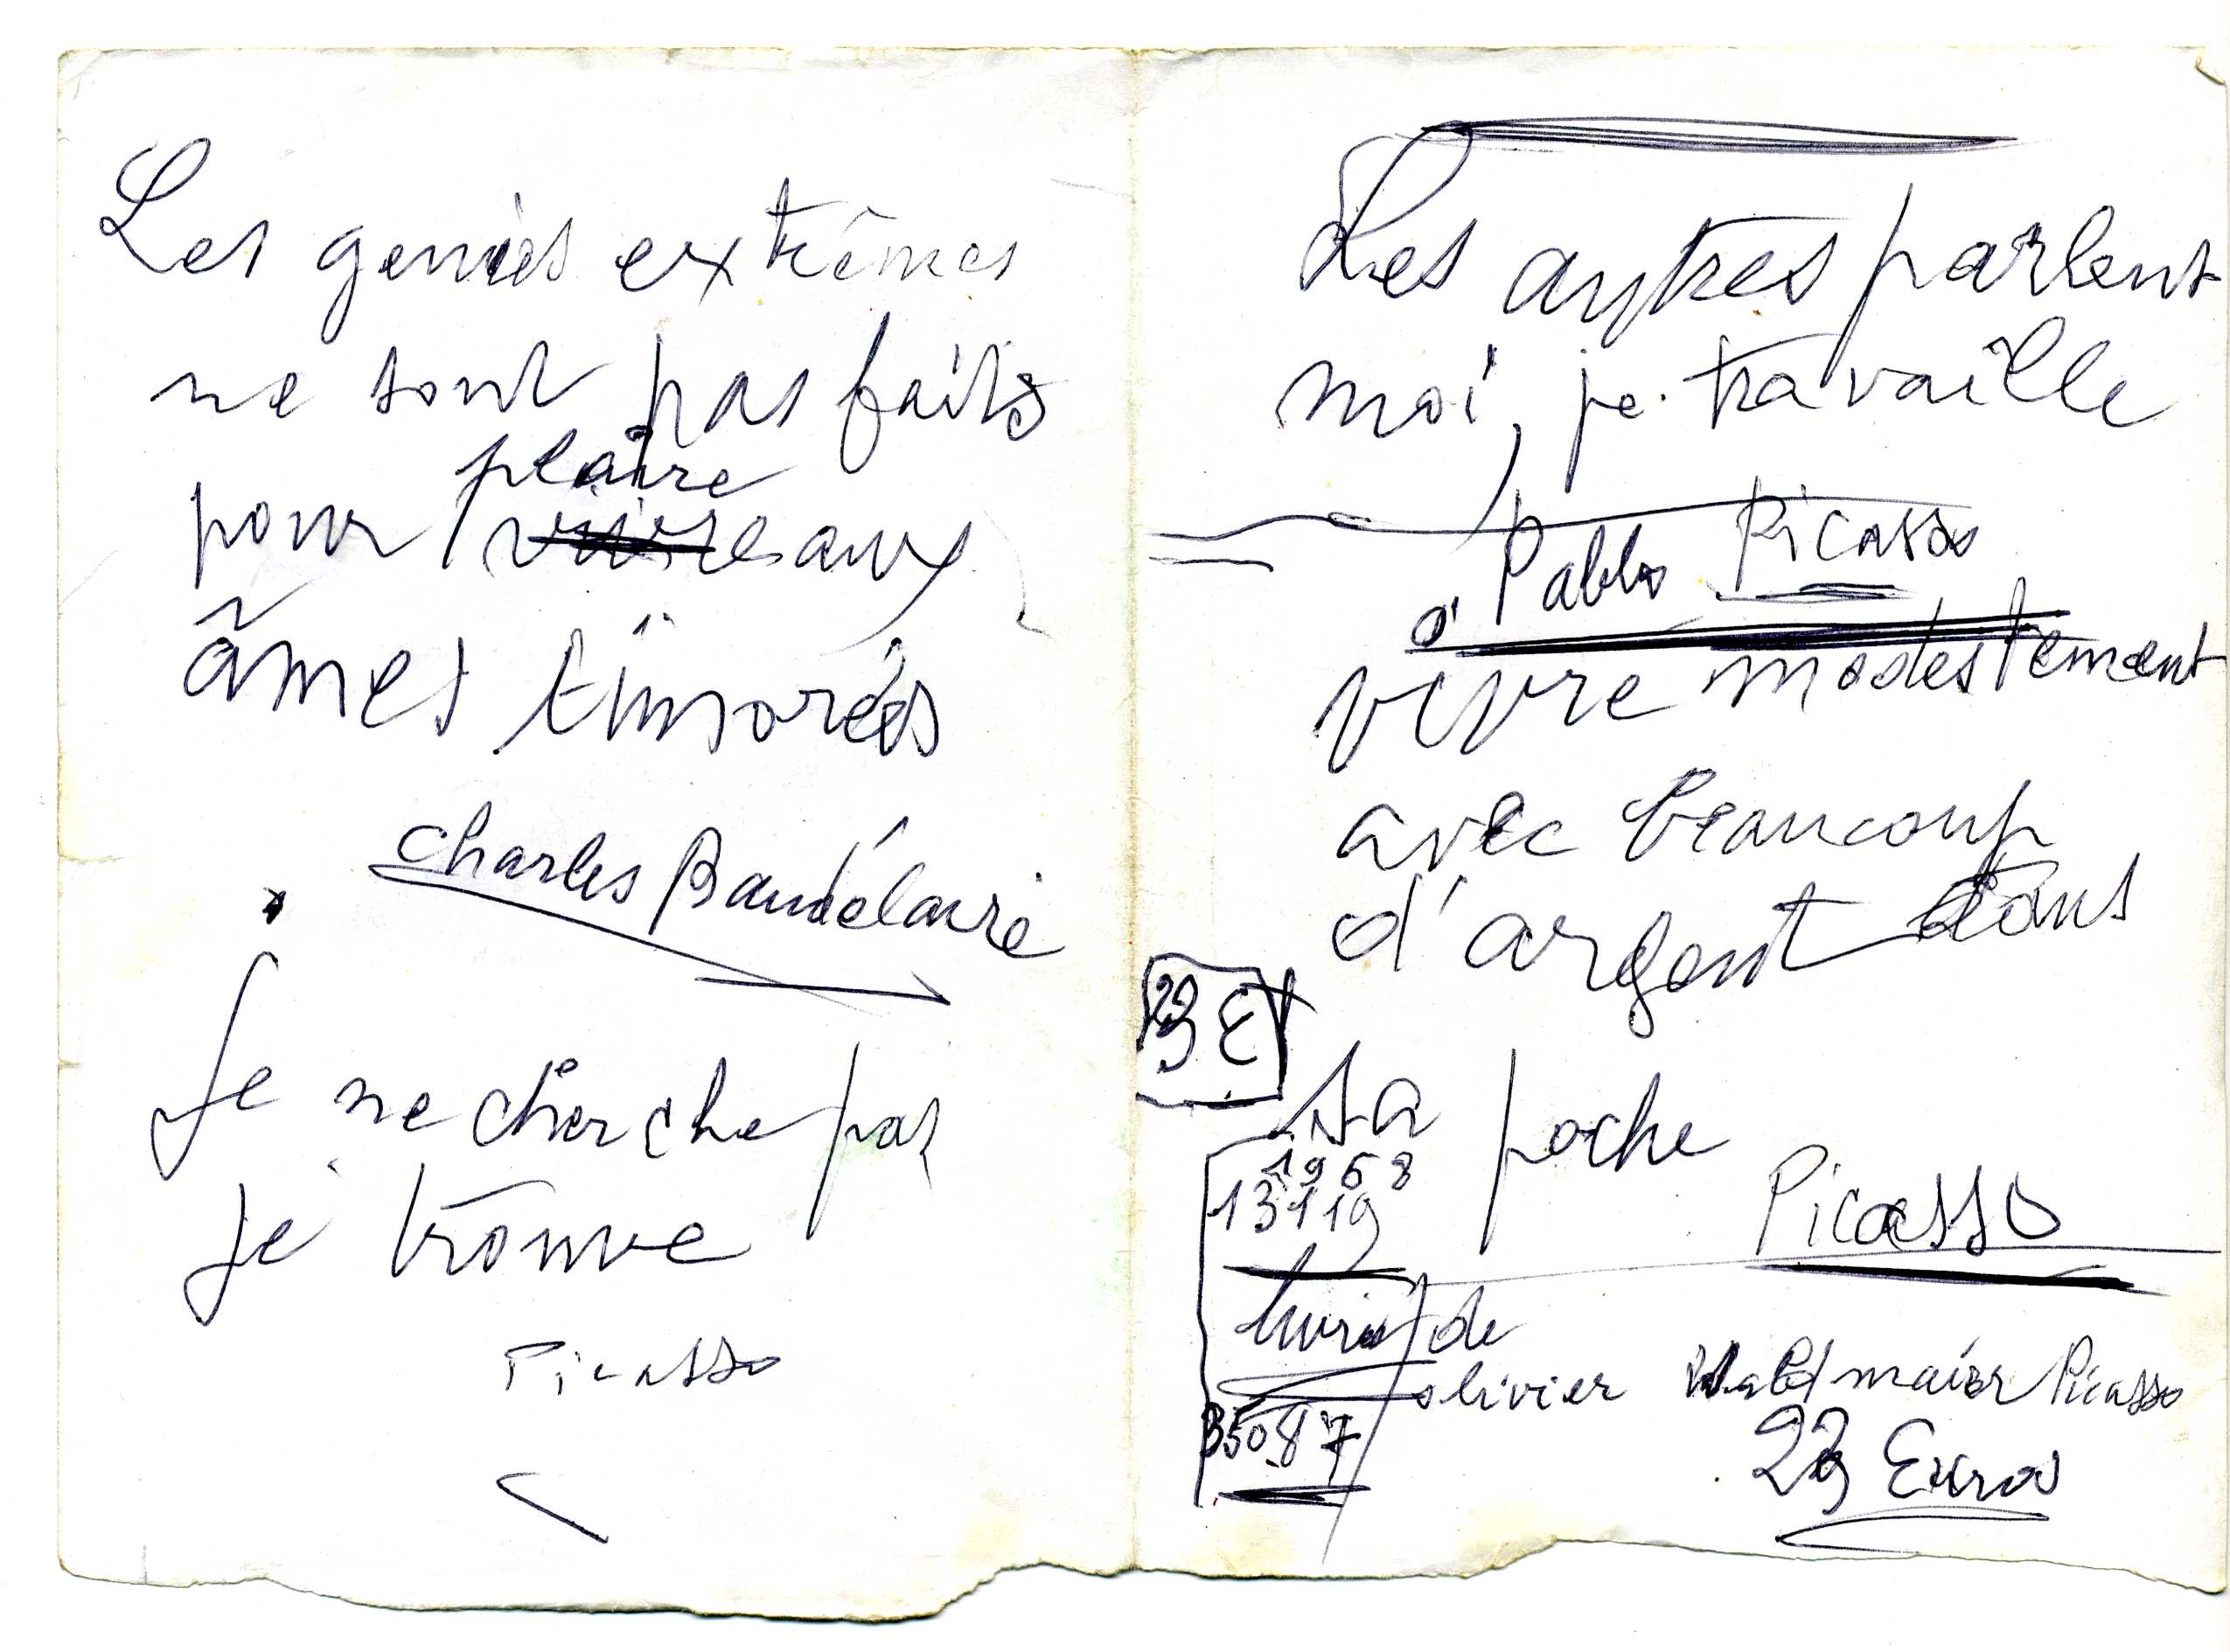 Les genies extrêmes
ne sont pas faits
plaire
pour vivre aux
âmes timorés
Charles Baudélaire
Je ne cherche pas
je trouve
Picasso
Les autres parlent
moi, je travaille
Pablo Picasso
vivre modestement
avec beaucoup
d'argent dans
sa poche
Picasso
1968
13119
de
olivier Picasso
35087
23 Euros